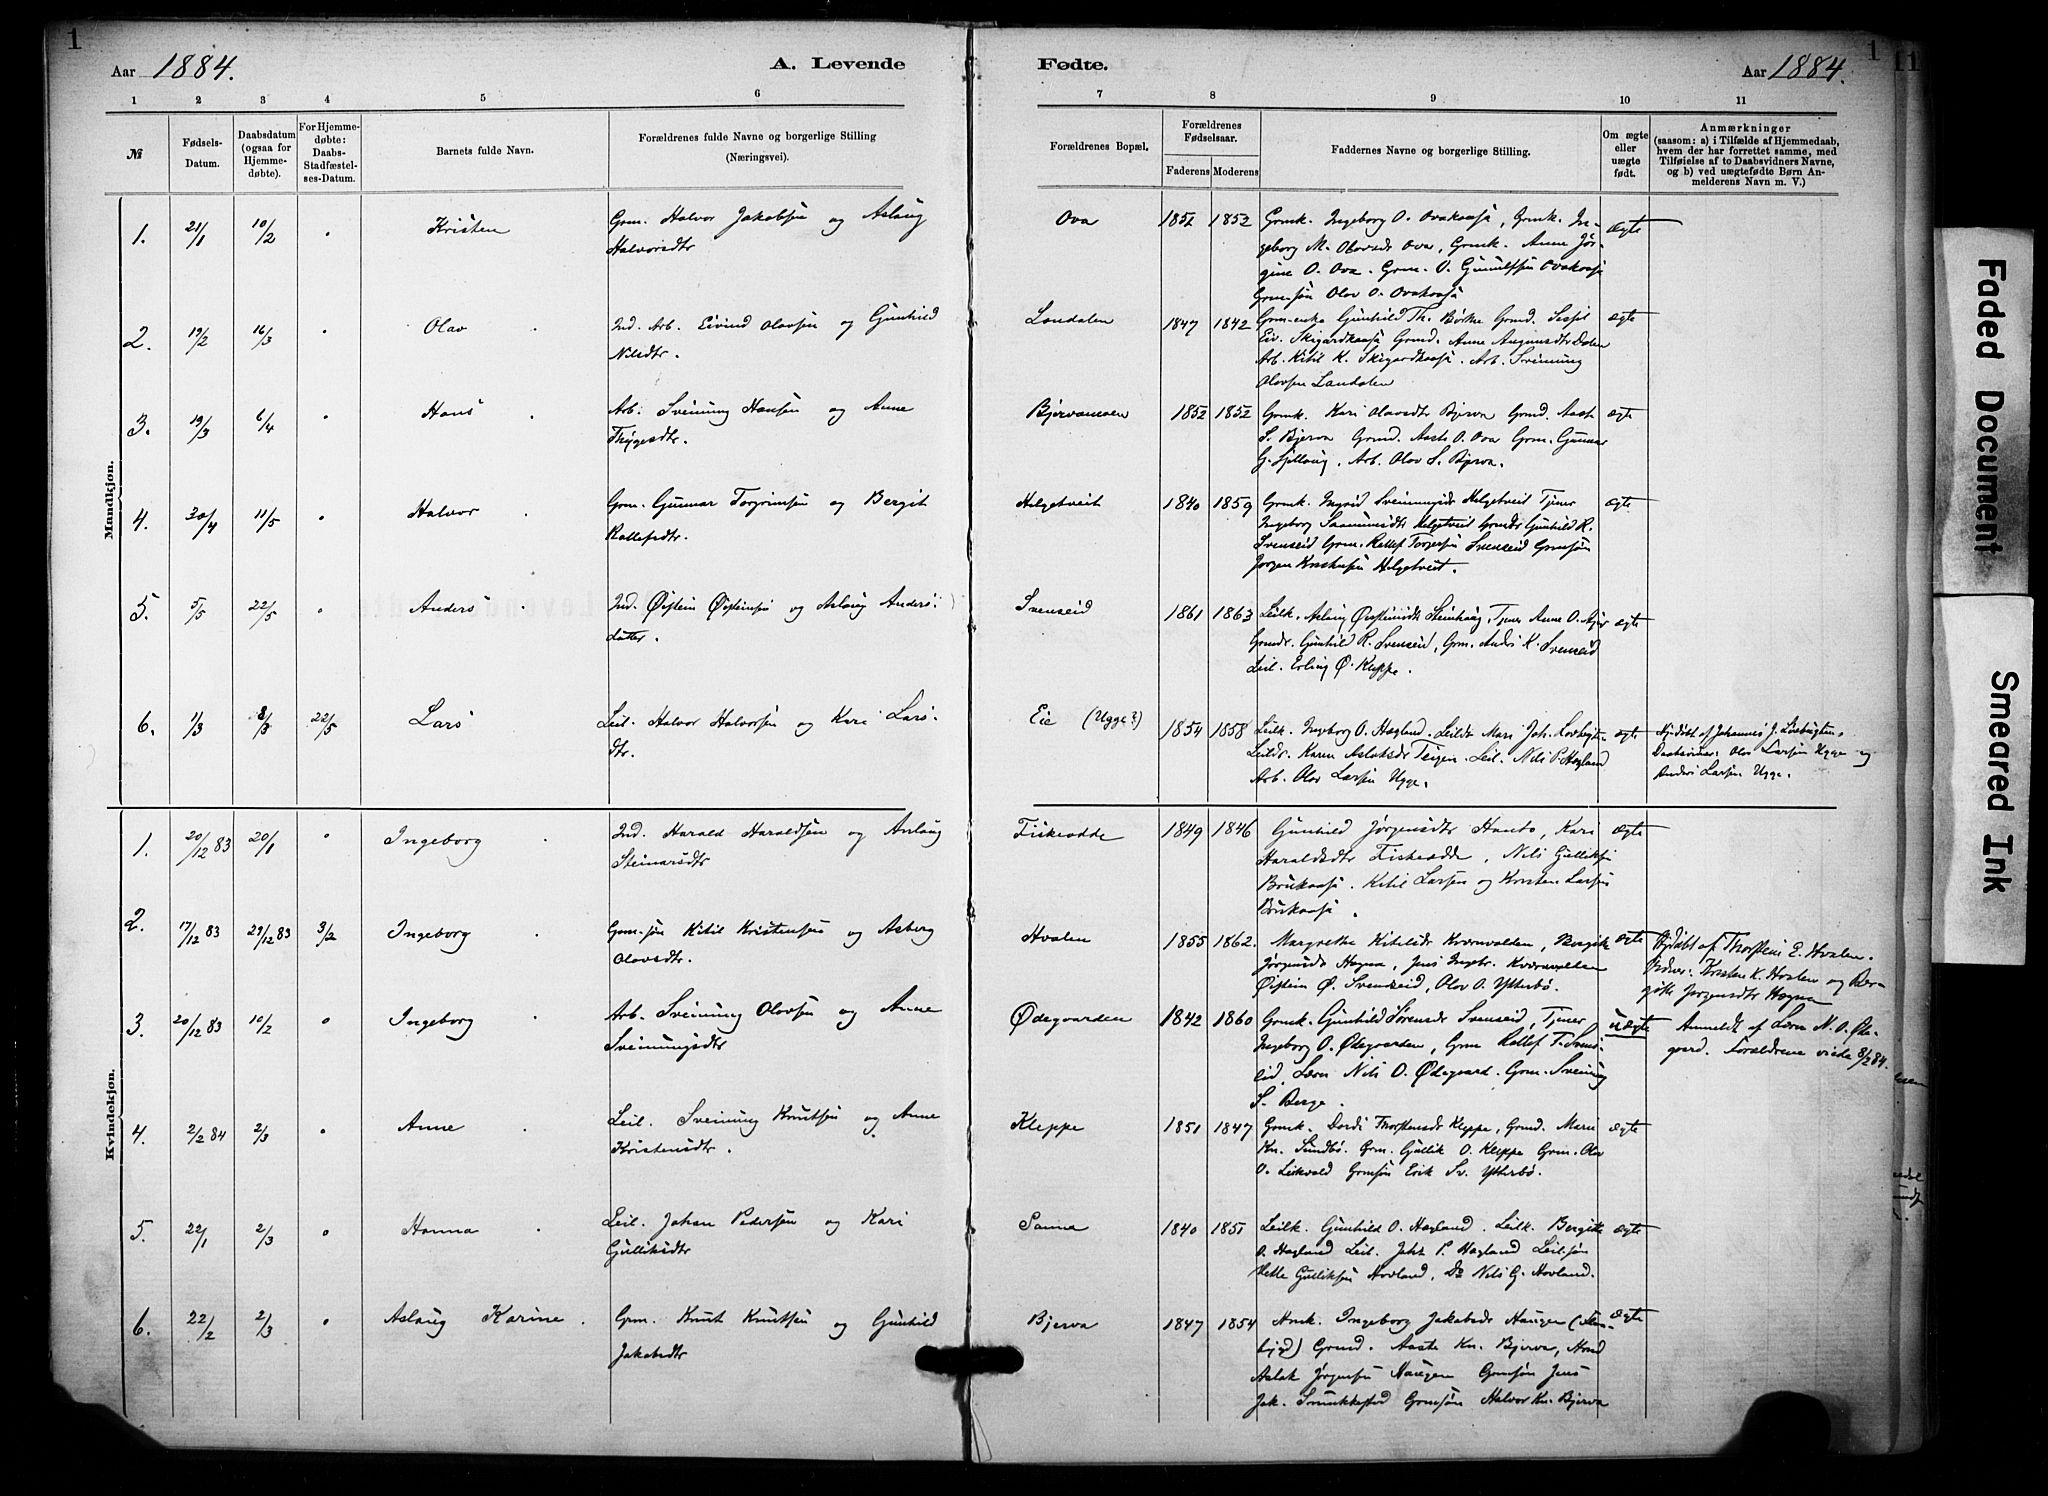 1
1
11
Aar 1884.
A. Levende
Fødte.
Aar 1884.
1 2 3 4 5 6
7 8 9 10 11
№
Fødsels-
Datum.
Daabsdatum
(ogsaa for
Hjemme-
døbte).
For Hjemme-
døbte:
Daabs-
Stadfæstel-
ses-Datum.
Barnets fulde Navn.
Forældrenes fulde Navne og borgerlige Stilling
(Næringsvei).
Forældrenes Bopæl.
Forældrenes
Fødselsaar.
Faderens Moderens
Faddernes Navne og borgerlige Stilling.
Om ægte
eller
uægte
født.
Anmærkninger
(saasom: a) i Tilfælde af Hjemmedaab,
hvem der har forrettet samme, med
Tilføielse af to Daabsvidners Navne,
og b) ved uægtefødte Børn An-
melderens Navn m. V.)
Mandkjøn.
1. 21/1 10/2 Kristen
Grm. Halvor Jakobsøn og Aslaug
Halvorsdtr
Ova 1852 1852
Grmk. Ingeborg O. Ovakaasa, Grmk. In-
geborg M. Olavsdr Ova, Grmk. Anne Jør-
gine O. Ova. Grm. O. Gunulfsøn Ovakaasa
Grmsøn Olav O. Ovakaasa
ægte
2. 19/2 16/3 Olav
Ind. Arb. Eivind Olavsøn og Gunhild
Nilsdtr.
Landalen 1847 1842
Grm-enke Gunhild Th. Børke Grmd.
Eiv. Skigardkaasa Grmd. Anne Dalen
Arb. Kitil K. Skigardkaasa. Arb. Sveinung
Olavsøn Landalen
ægte
3. 19/3 6/4 Hans
Arb. Sveinung Hansøn og Anne
Thygesdtr.
Bjervamoen 1852 1852
Grmk. Kari Olavsdtr Bjerva Grmd. Aaste
S. Bjerva Grmd. Aaste O. Ova Grm. Gunnar
G. Arb. Olav S. Bjerva.
ægte
4. 30/4 11/5 Halvor
Grm. Gunnar Torgrimsøn og Bergit
Rollefsdtr.
Helgetveit 1840 1859
Grmk. Ingrid Sveinungsdr Helgetveit Tjener
Ingeborg Saamundsdtr Helgetveit Grmdr Gunhild R.
Svenseid Grm. Rollef Torgersøn Svenseid Grmsøn
Jørgen Knutsøn Helgetveit.
ægte
5. 5/5 22/5 Anders
Ind. Øistein Øisteinsøn og Aslaug Anders-
datter.
Svenseid 1861 1863
Leilk. Aslaug Øisteinsdtr Steinhaug, Tjener Anne O.
Grmdr. Gunhild R. Svenseid, Grm. Anders K. Svenseid
Leil. Erling Ø. Kleppe.
ægte
6. 1/3 8/3 22/5 Lars
Leil. Halvor Halvorsøn og Kari Lars-
dtr.
Eie (Ugge?) 1854 1858
Leilk. Ingeborg O. Hagland. Leildr Mari Joh. Løvbugten
Leildr. Karen Aslaksdr Teigen. Leil. Nils P. Hagland
Arb. Olav Larsøn Ugge.
ægte
Hjdøbt af Johannes J. Løvbugten.
Daabsvidner: Olav Larsøn Ugge og
Anders Larsøn Ugge.
Kvindekjøn.
1. 20/12 83 20/1 Ingeborg
Ind. Harald Haraldsøn og Aslaug
Steinarsdtr
Fiskeodde 1849 1846
Gunhild Jørgensdtr Hanto, Kari
Haraldsdtr Fiskeodde, Nils Gulliksøn
Brukaasa. Kitil Larsøn og Kristen Larsøn
Brukaasa.
ægte
2. 17/12 83 29/12 83 3/2 Ingeborg
Grm-søn Kitil Kristensøn og Asberg
Olavsdtr.
Hvalen 1855 1862.
Margrethe Kitilsdr Kvernvolden, Bergitte
Jørgensdr Hagna, Jens Ingebr. Kvernvolden
Øistein Ø. Svenseid, Olav O. Ytterbø.
ægte
Hjdøbt af Thorstein E. Hvalen.
Vidner: Kristen K. Hvalen og Ber-
gitte Jørgensdtr Hagna
3. 20/12 83 10/2 Ingeborg
Arb. Sveinung Olavsøn og Anne
Sveinungsdtr
Ødegaarden 1842 1860
Grmk. Gunhild Sørensdr Svenseid, Tjener
Ingeborg O. Ødegaarden, Grm Rollef T. Svens-
eid, Lærer Nils O. Ødegaard. Grm. Sveinung
S. Berge.
uægte
Anmeldt af Lærer N. O. Øde-
gaard. Forældrene viede 8/2 84.
4. 2/2 84 2/3 Anne
Leil. Sveinung Knutsøn og Anne
Kristensdtr.
Kleppe 1851 1847
Grmk. Dordi Thorstensdr Kleppe, Grmd. Mari
Kn. Sundbø. Grm. Gullik O. Kleppe Grm. Olav
O. Leikvold Grmsøn Erik Sv. Ytterbø.
ægte
5. 22/1 2/3 Hanna
Leil. Johan Pedersøn og Kari
Gulliksdtr
Sanna 1840 1851
Leilk. Gunhild O. Hagland. Leilk. Bergitte
O. Hagland Leil. Johs P. Hagland Leilsøn
Gulliksøn Hovland, Do Nils G. Hovland.
ægte
6. 22/2 2/3 Aslaug Karine
Grm. Knut Knutsøn og Gunhild
Jakobsdtr
Bjerva 1847 1854
Ingeborg Jakobsdr Haugen
Grmd. Aaste Kn. Bjerva,
Aslak Jørgensøn Haugen Grmsøn Jens
Jak. Smukkestad Grmsøn Halvor Kn. Bjerva
ægte
Faded Document
Smeared Ink